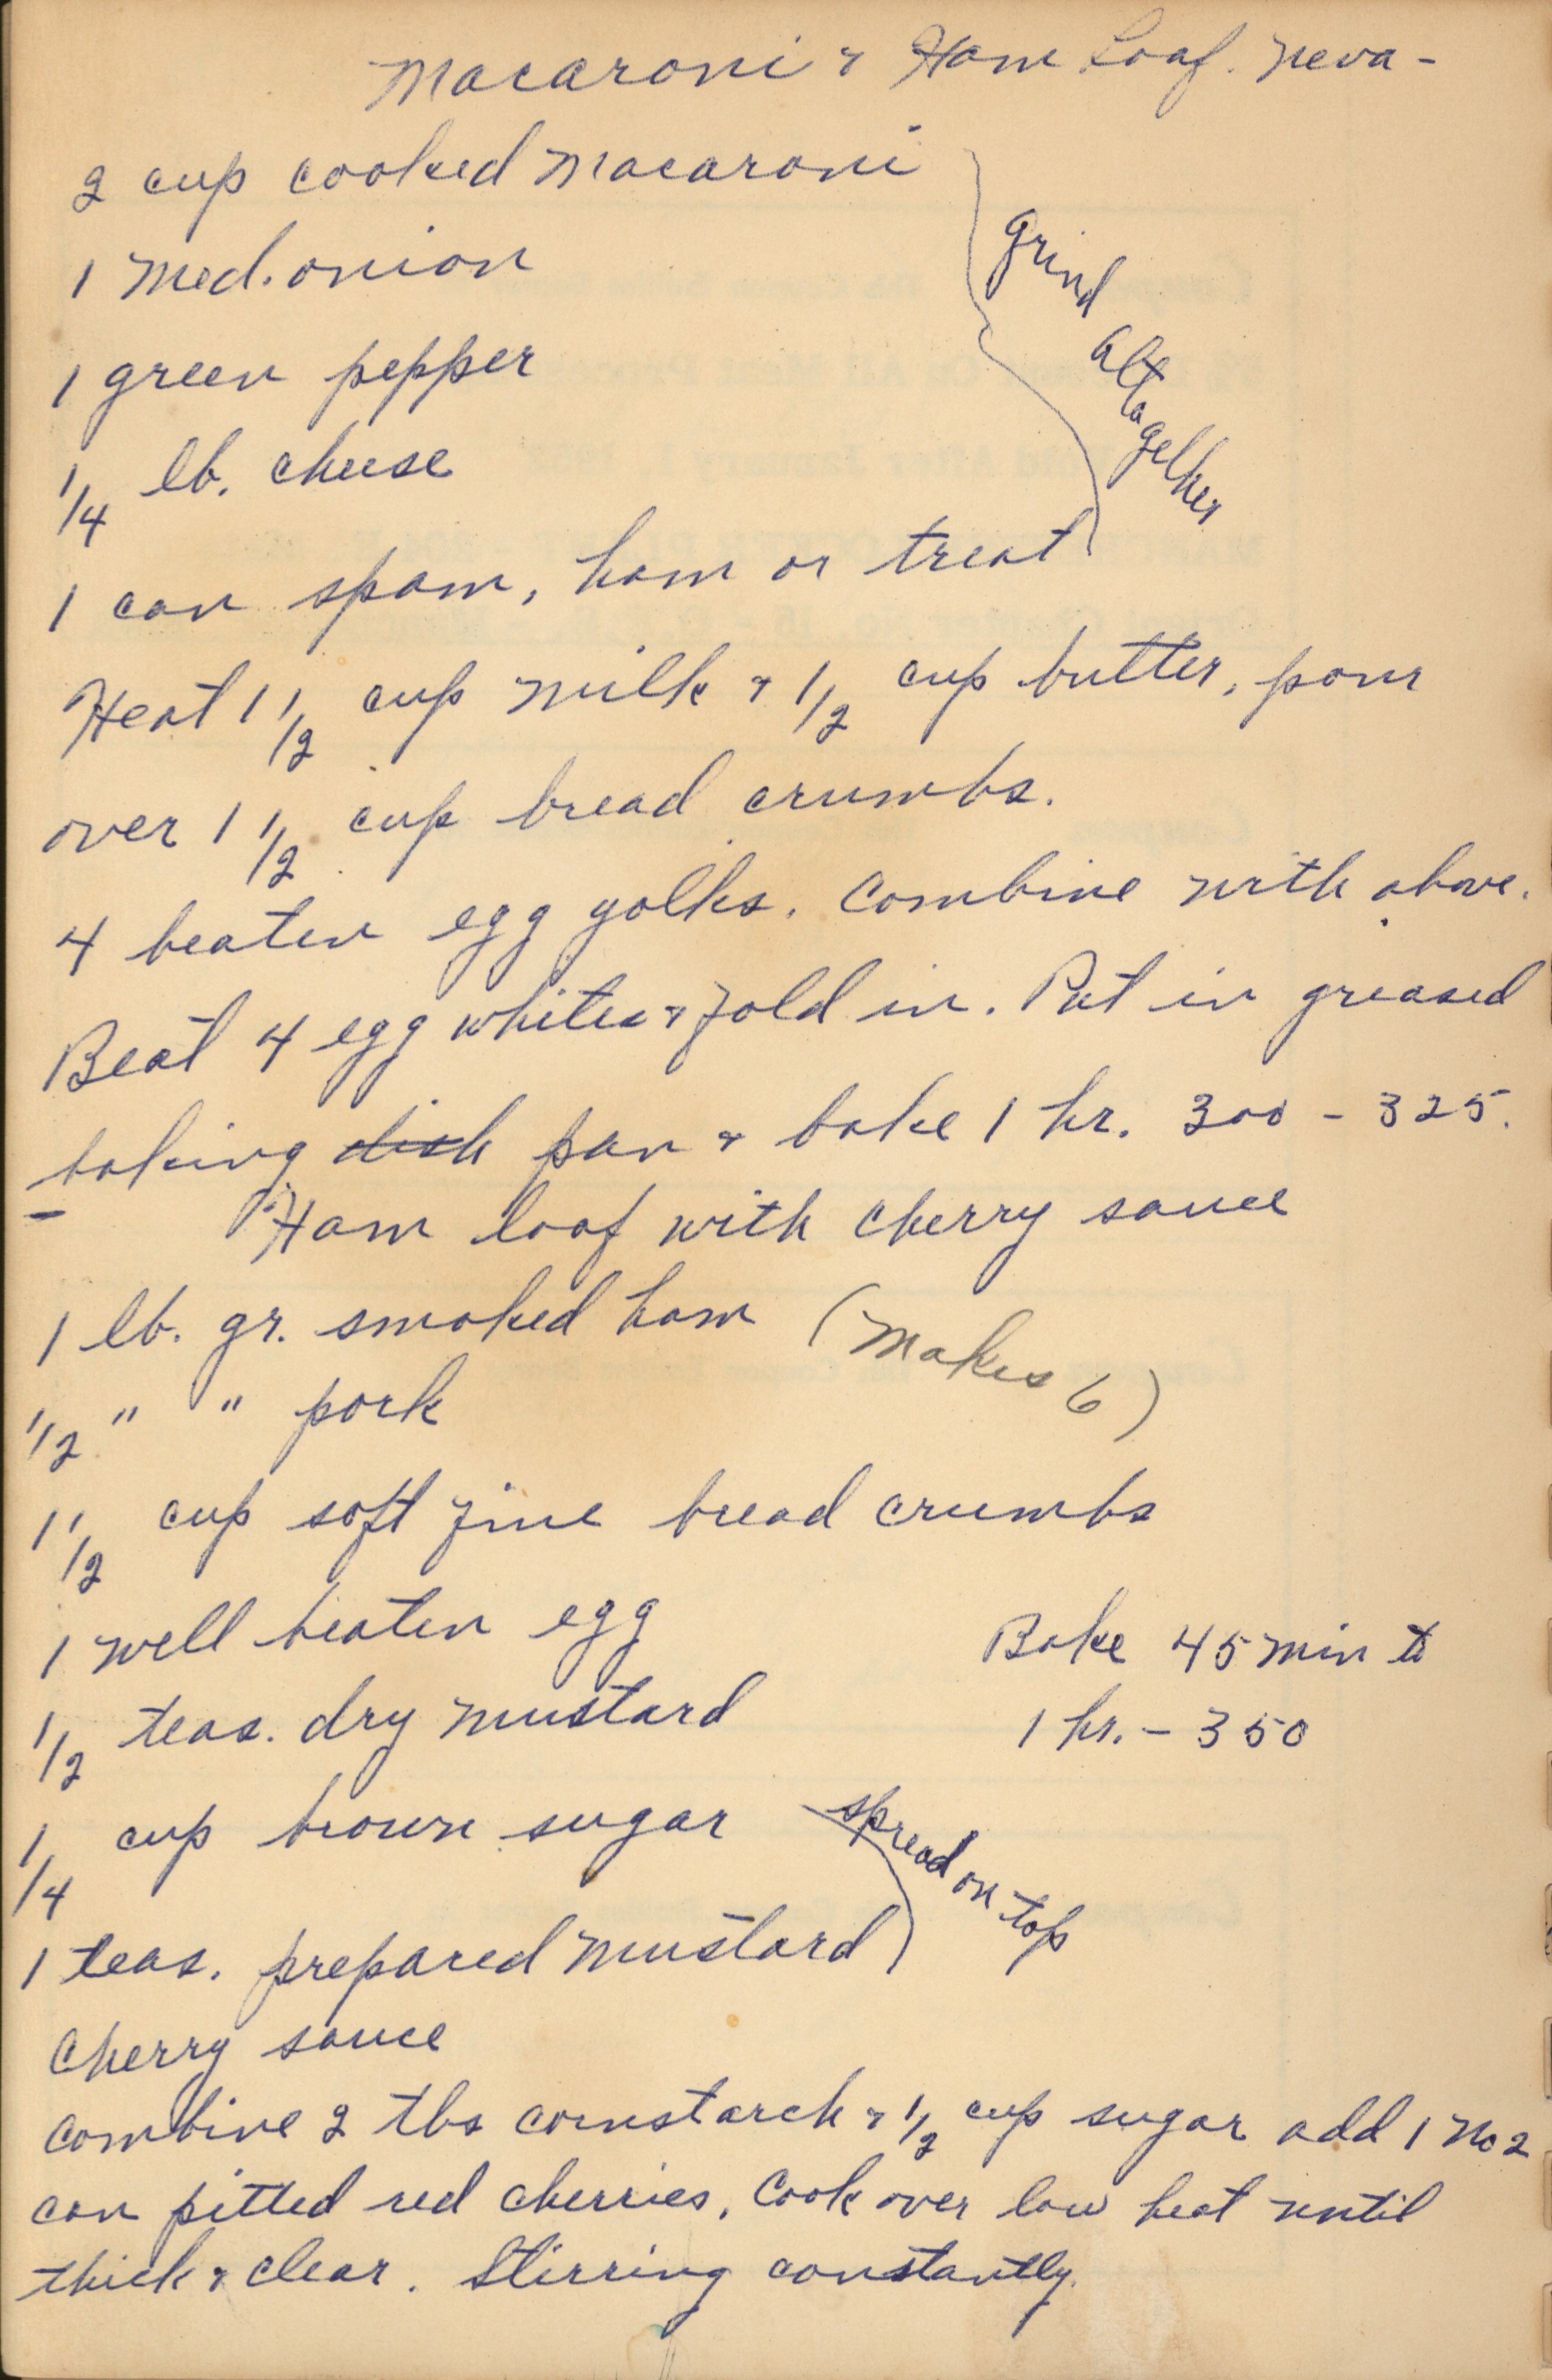 Macaroni & Ham Loaf. Neva -
2 cup cooked macaroni
1 med. onion
1 green pepper
1/4 lb. cheese
1 can spam, ham or treat
grind altogether
Heat 1 1/2 cup milk & 1/2 cup butter, pour
over 1 1/2 cup bread crumbs.
4 beaten egg yolks. Combine with above.
Beat 4 egg whites & fold in. Put in greased
baking dish pan & bake 1 hr. 300 - 325.
Ham loaf with cherry sauce
1 lb. gr. smoked ham (makes 6)
1/2 " " pork
1 1/2 cup soft fine bread crumbs
1 well beaten egg
1/2 teas. dry mustard
Bake 45 min to
1 hr. - 350
1/4 cup brown sugar
1 teas. prepared mustard
spread on top
Cherry sauce
Combine 2 tbs cornstarch & 1/2 cup sugar add 1 No 2
can pitted red cherries. Cook over low heat until
thick & clear. Stirring constantly.